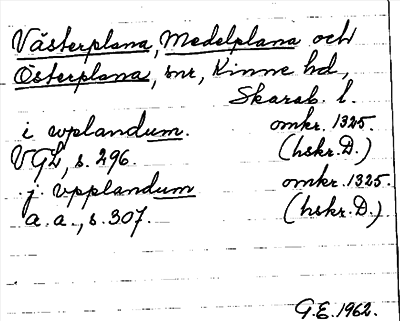 Västerplana, Medelplana och
Österplana, snr, Kinne hd,
Skarab. l.
i wplandum. omkr. 1325.
VGL, s. 296. (hskr. D.)
j vpplandum omkr. 1325.
a. a., s. 307. (hskr. D.)
G.E. 1962.